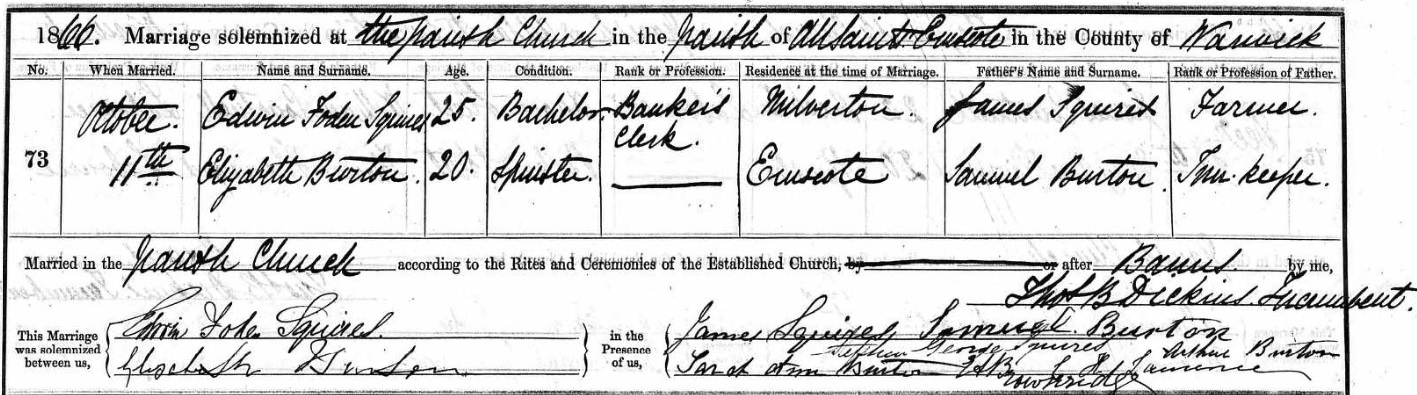 1866. Marriage solemnized at the parish Church in the parish of All Saints Emscote in the County of Warwick
No. When Married. Name and Surname. Age. Condition. Rank or Profession. Residence at the time of Marriage. Father's Name and Surname. Rank or Profession of Father.
73 October 11th Edwin Foden Squires 25. Bachelor Banker's Clerk. Milverton. James Squires Farmer.
Elizabeth Burton. 20. Spinster. Emscote Samuel Burton. Inn-keeper.
Married in the parish Church according to the Rites and Ceremonies of the Established Church, by or after Banns. by me,
Thos B Dickins. Incumbent.
This Marriage was solemnized between us, Edwin Foden Squires. in the Presence of us, James Squires Samuel Burton
George Squires Arthur Burton
Elizabeth Burton Sarah Ann Burton Lawrence